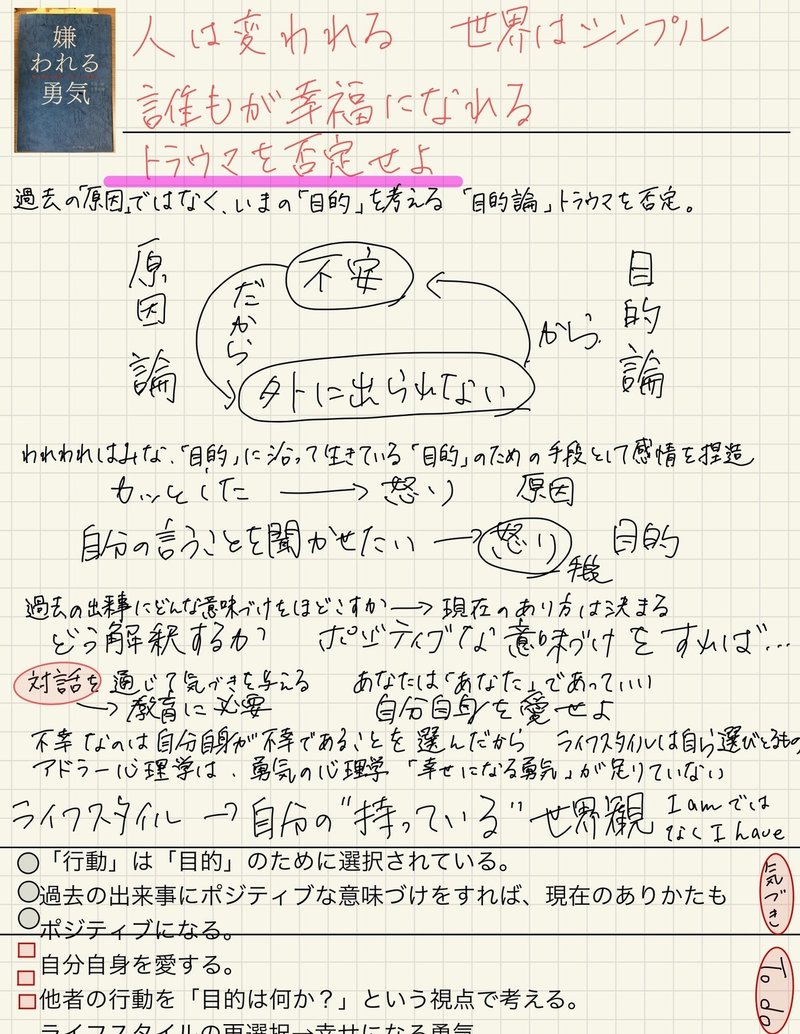 嫌
われる
勇気
人は変われる 世界はシンプル
誰もが幸福になれる
トラウマを否定せよ
過去の「原因」ではなく、いまの「目的」を考える 「目的論」トラウマを否定。
原因論
だから
不安
外に出られない
から
目的論
われわれはみな、「目的」に沿って生きている「目的」のための手段として感情を捏造
カッとした → 怒り 原因
自分の言うことを聞かせたい → 怒り 目的
手段
過去の出来事にどんな意味づけをほどこすか → 現在のあり方は決まる
どう解釈するか ポジティブな意味づけをすれば…
対話を通じて気づきを与える あなたは「あなた」であっていい
→ 教育に必要 自分自身を愛せよ
不幸なのは自分自身が不幸であることを選んだから ライフスタイルは自ら選びとるもの
アドラー心理学は、勇気の心理学 「幸せになる勇気」が足りていない
ライフスタイル → 自分の“持っている”世界観 I am では
なく I have
「行動」は「目的」のために選択されている。
過去の出来事にポジティブな意味づけをすれば、現在のありかたも
ポジティブになる。
気づき
自分自身を愛する。
他者の行動を「目的は何か？」という視点で考える。
ライフスタイルの再選択→幸せになる勇気
To do